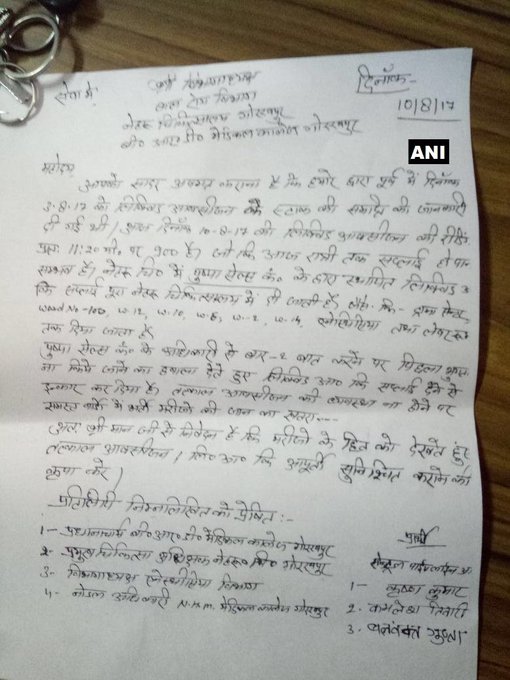 सेवा में, श्री विभागाध्यक्ष
बाल रोग विभाग
नेहरू चिकित्सालय गोरखपुर
बी० आर० डी० मेडिकल कालेज गोरखपुर
दिनाँक-
10/8/17
ANI
महोदय
आपको सादर अवगत कराना है कि हमारे द्वारा पूर्व में दिनाँक
3-8-17 को लिक्विड आक्सीजन के स्टाक की समाप्ति की जानकारी
दी गई थी। आज दिनाँक 10-8-17 को लिक्विड आक्सीजन की रीडिंग
प्रातः 11:20 मी० पर 900 है। जो कि आज रात्री तक सप्लाई हो पाना
सम्भव है। नेहरू चि० में पुष्पा सेल्स कं० के द्वारा स्थापित लिक्विड
कि सप्लाई पूरा नेहरू चिकित्सालय में दी जाती है। जैसे कि- ट्रामा सेन्टर,
ward No-100, w-12, w-10, w-8, w-2, w-14, एनेस्थिसिया तथा लेबर रूम
तक दिया जाता है।
पुष्पा सेल्स कं० के अधिकारी से बार-2 बात करने पर पिछला भुगतान
ना किये जाने का हवाला देते हुए लिक्विड आ० कि सप्लाई देने से
इन्कार कर दिया है। तत्काल आक्सीजन की व्यवस्था ना होने पर
समस्त वार्डो में भर्ती मरीजो की जान का खतरा---
अतः श्री मान जी से निवेदन है कि मरीजो के हित को देखते हुए
तत्काल आक्सीजन / लि० आ० कि आपूर्ती सुनिश्चित कराने की
कृपा करें।
प्रतिलिपि निम्नलिखित को प्रेषित :-
1- प्रधानाचार्य बी० आर० डी० मेडिकल कालेज गोरखपुर
2- प्रमुख चिकित्सा अधिक्षक नेहरू चि० गोरखपुर
3- विभागाध्यक्ष एनेस्थीसिया विभाग
4- नोडल अधिकारी N.H.M. मेडिकल कालेज गोरखपुर
प्रार्थी
सेन्ट्रल पाईपलाईन आ०
1- कृष्ण कुमार
2. कमलेश तिवारी
3. बलवन्त गुप्ता